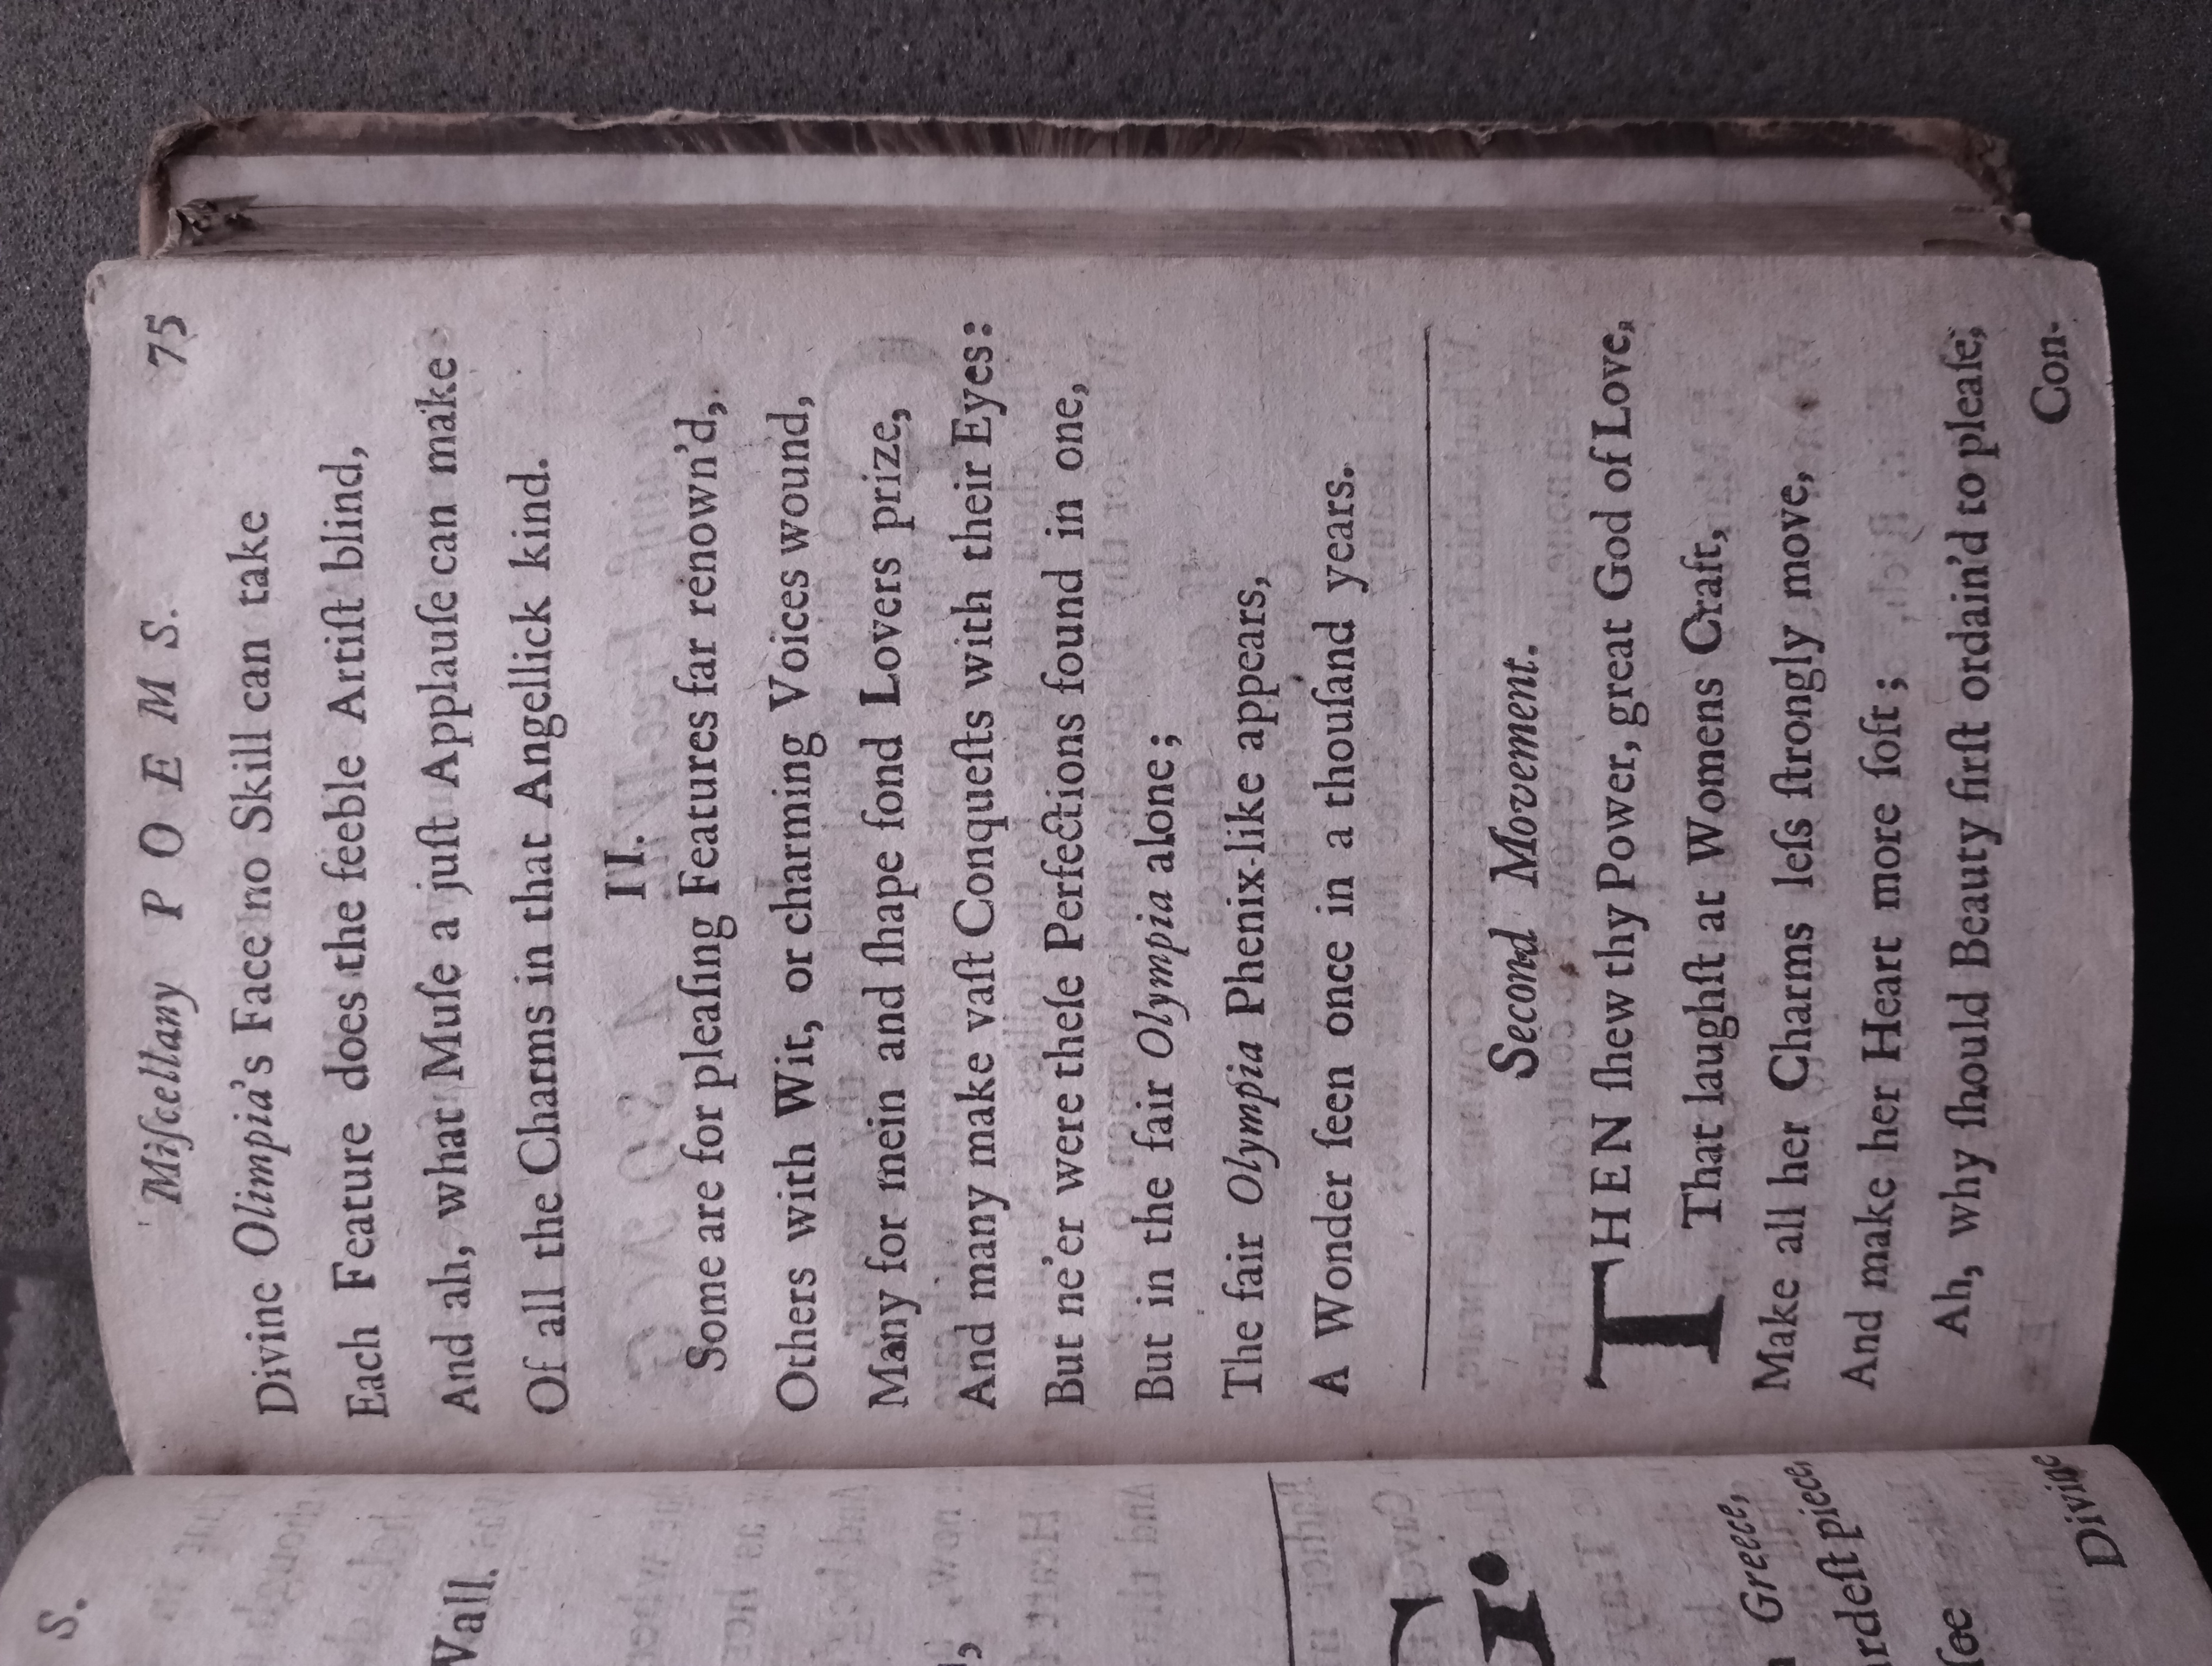 Miſcellany POEMS. 75
Divine Olimpia's Face no Skill can take
Each Feature does the feeble Artiſt blind,
And ah, what Muſe a juſt Applauſe can make
Of all the Charms in that Angellick kind.
II.
Some are for pleaſing Features far renown'd,
Others with Wit, or charming Voices wound,
Many for mein and ſhape fond Lovers prize,
And many make vaſt Conqueſts with their Eyes:
But ne'er were theſe Perfections found in one,
But in the fair Olympia alone;
The fair Olympia Phenix-like appears,
A Wonder ſeen once in a thouſand years.
Second Movement.
THEN ſhew thy Power, great God of Love,
That laughſt at Womens Craft,
Make all her Charms leſs ſtrongly move,
And make her Heart more ſoft;
Ah, why ſhould Beauty firſt ordain'd to pleaſe,
Con-
S.
Wall.
Greece,
piece,
ſee
Divine